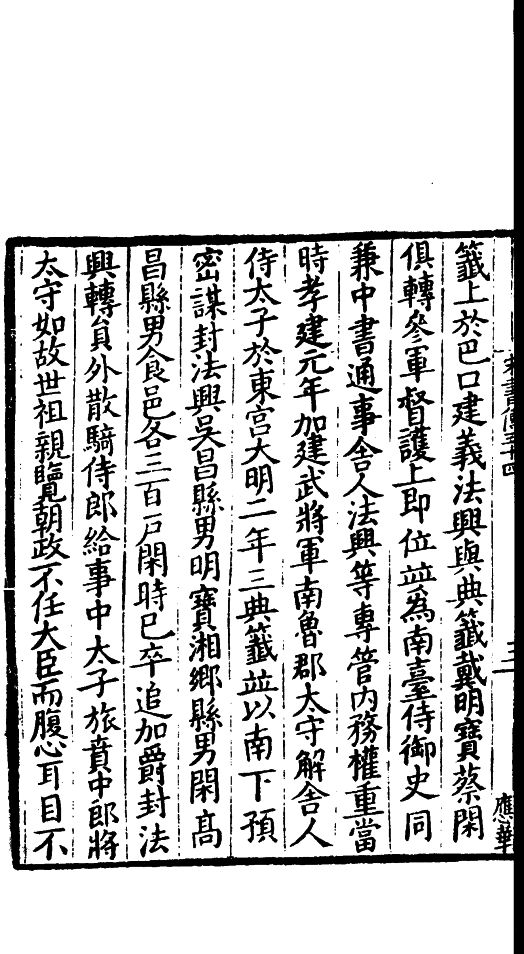 宋書傳五十四
三
應華
籤上於巴口建義法興與典籤戴明寶蔡閑
俱轉參軍督護上即位並爲南臺侍御史同
兼中書通事舍人法興等專管内務權重當
時孝建元年加建武將軍南魯郡太守解舍人
侍太子於東宫大明二年三典籤並以南下預
密謀封法興吳昌縣男明寶湘鄉縣男閑高
昌縣男食邑各三百戸閑時已卒追加爵封法
興轉員外散騎侍郎給事中太子旅賁中郎將
太守如故世祖親覽朝政不任大臣而腹心耳目不